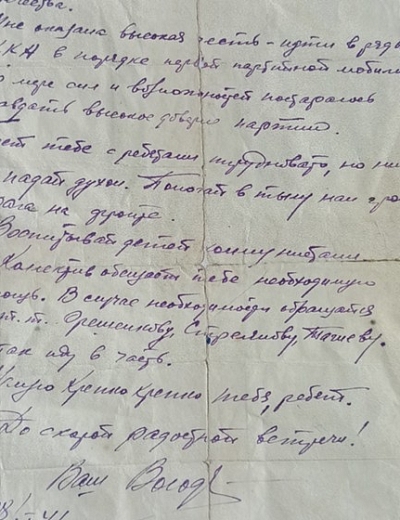 Мне оказана высокая честь - идти в ряды
ККА в порядке первой партийной мобили
мере сил и возможностей постараюсь
авдать высокое доверие партии.
тебе с ребятами трудновато, но ни
падай духом. Помогай в тылу нам гро
рага на фронте.
Воспитывай детей коммунистами
Колектив обещает тебе необходимую
ощь. В случае необходимости обращайся
т.т. Стрелкову, Тагиеву.
так иду в часть.
Крепко Крепко тебя, ребят.
До скорой радостной встречи!
Ваш Володя